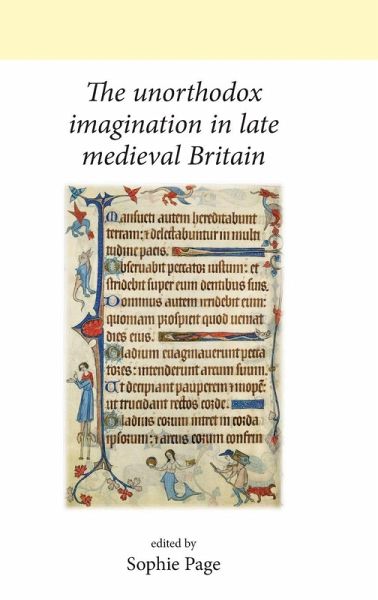 The unorthodox
imagination in late
medieval Britain
Mansueti autem hereditabunt
terram: et delectabuntur in multi
tudine pacis.
Observabit peccator iustum: et
stridebit super eum dentibus suis.
Dominus autem irridebit eum:
quoniam prospicit quod veniat
dies eius.
Gladium evaginaverunt pecca
tores: intenderunt arcum suum.
Ut decipiant pauperem et inopem:
ut trucident rectos corde.
Gladius eorum intret in corda
ipsorum: et arcus eorum confrin
edited by
Sophie Page